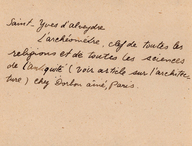 Saint-Yves d'alveydre
L'archéomètre, clef de toutes les
religions et de toutes les sciences
de l'antiquité (voir article sur l'architec-
ture) chez Dorbon aîné, Paris.